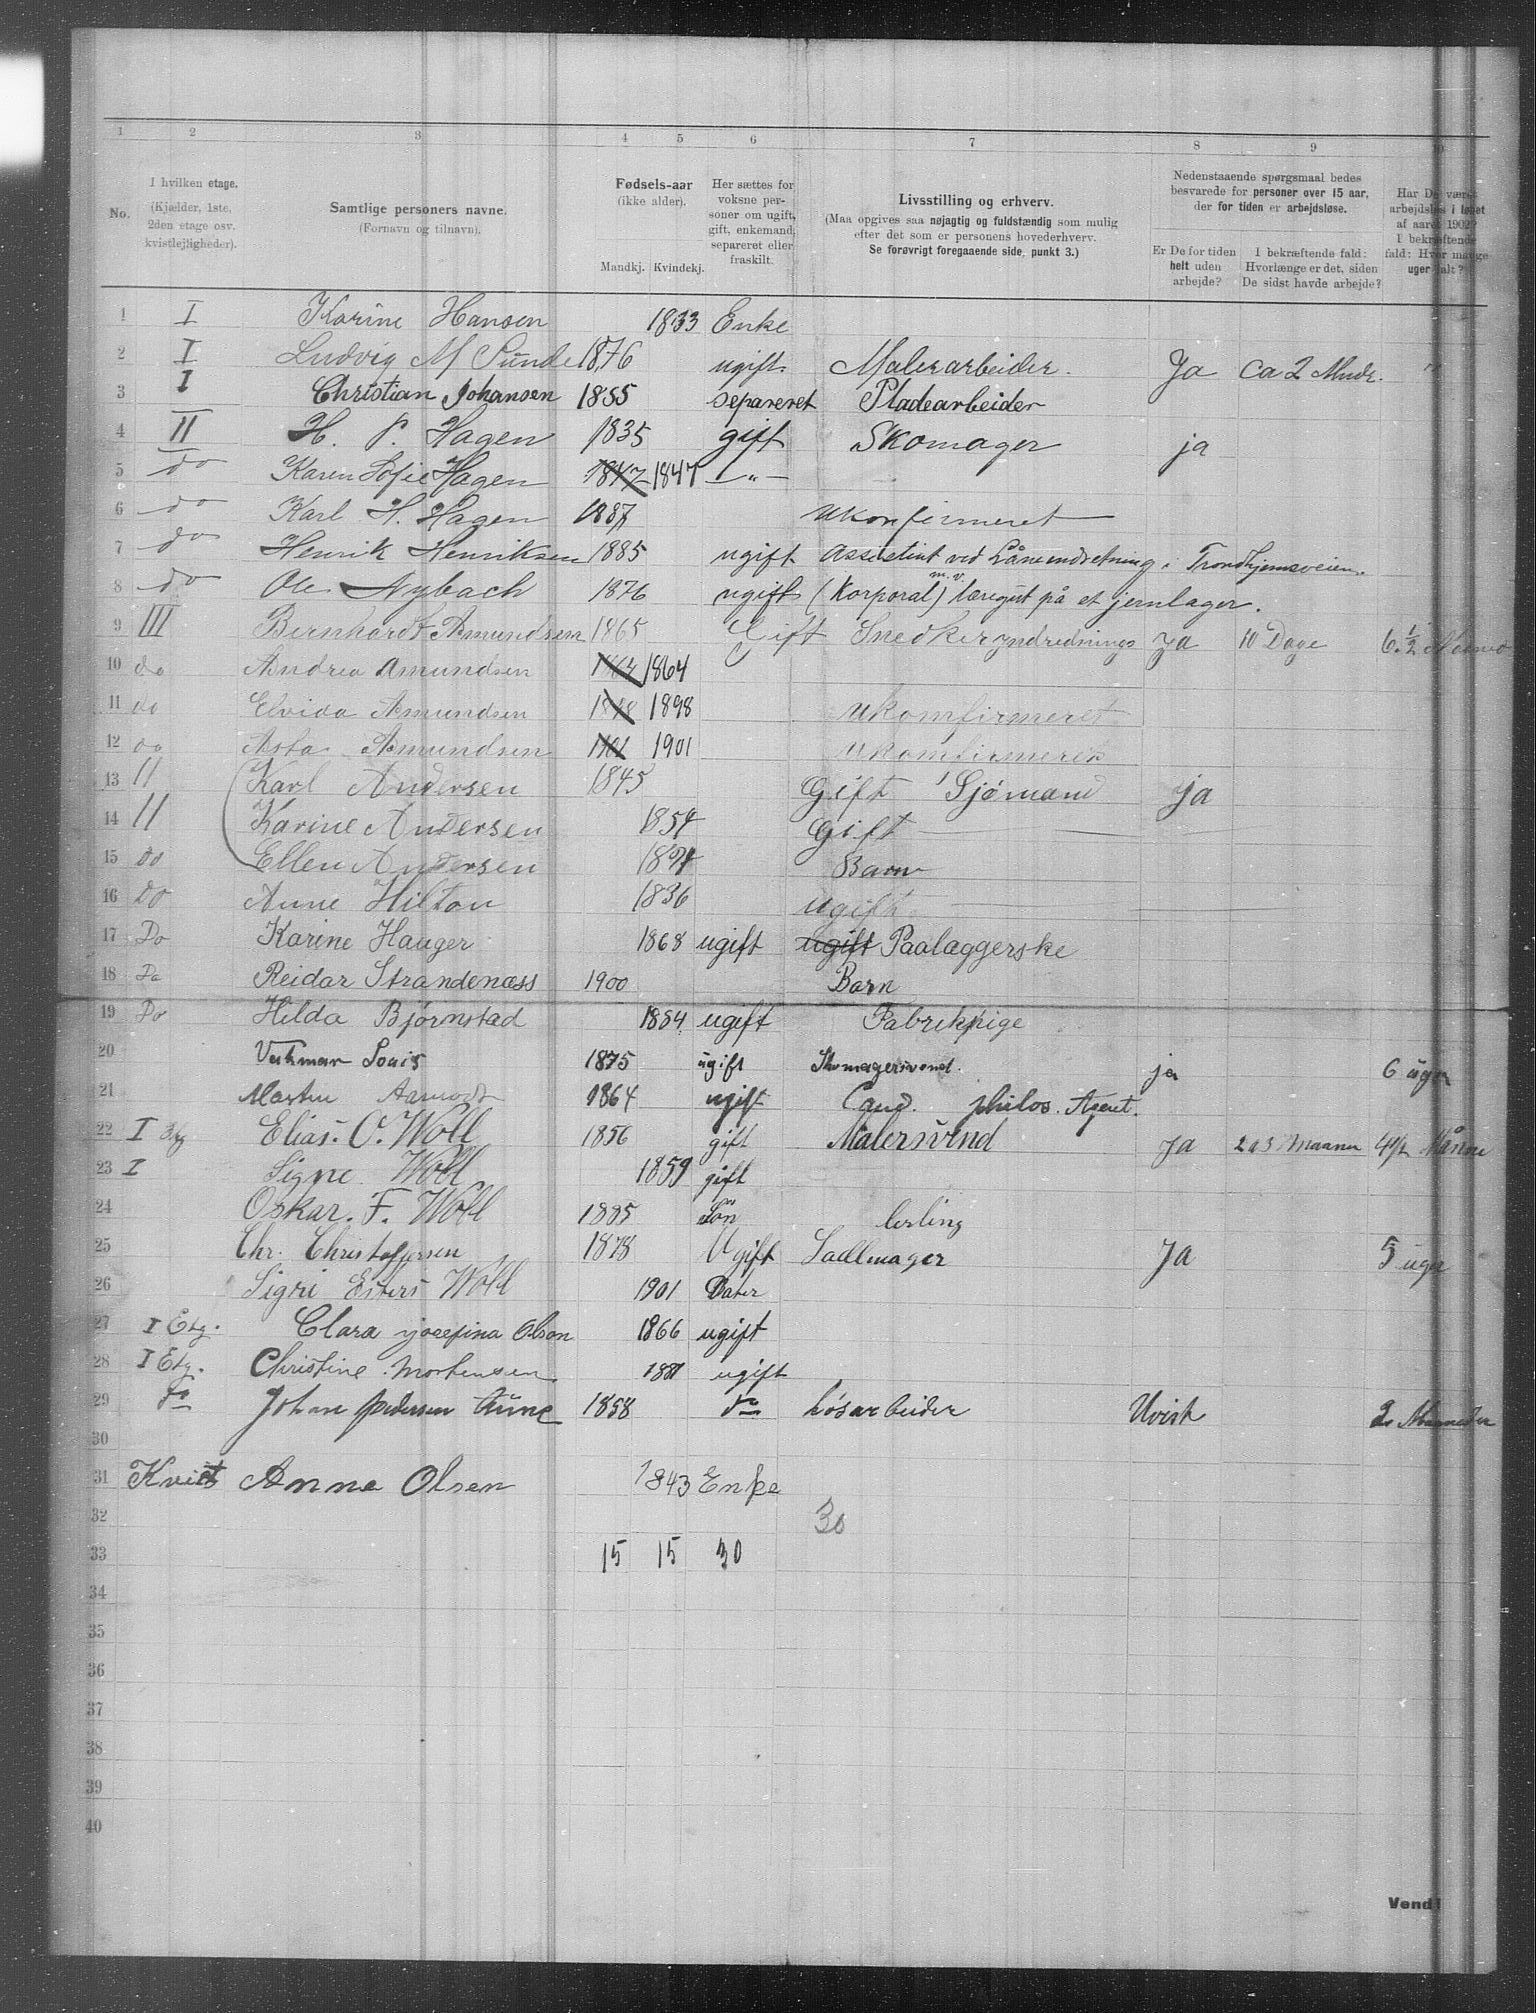 1 2 3 4 5 6 7 8 9 10
No. I hvilken etage. (Kjælder, 1ste, 2den etage osv. kvistlejligheder). Samtlige personers navne. (Fornavn og tilnavn). Fødsels-aar (ikke alder). Mandkj. Kvindekj. Her sættes for voksne personer om ugift, gift, enkemand, separeret eller fraskilt. Livsstilling og erhverv. (Maa opgives saa nøjagtig og fuldstændig som mulig efter det som er personens hovederhverv. Se forøvrigt foregaaende side, punkt 3.) Nedenstaaende spørgsmaal bedes besvarede for personer over 15 aar, der for tiden er arbejdsløse. Er De for tiden helt uden arbejde? I bekræftende fald: Hvorlænge er det, siden De sidst havde arbejde? Har De været arbejdsløs i løbet af aaret 1902? I bekræftende fald: Hvor mange uger ialt?
1 I Karine Hansen 1833 Enke
2 I Ludvig M Sunde 1876 ugift Malerarbeider. Ja ca 2 Mndr. "
3 I Christian Johansen 1855 separeret Pladearbeider
4 II H. P. Hagen 1835 gift Skomager ja
5 do Karen Sofie Hagen 1847 1847 —"—
6 do Karl H. Hagen 1887 Ukonfirmeret
7 do Henrik Henriksen 1885 ugift Assistint ved Låneindretning i Trondhjemsveien.
8 do Ole Nybach 1876 ugift (Korporal) m.v. læregut på et jernlager.
9 III Bernhardt Amundsen 1865 Gift Snedker yndrednings Ja 10 Dage 6. 1/2
10 do Andrea Amundsen 1864 1864
11 do Elvida Amundsen 1898 1898 Ukomfirmeret
12 do Asta Amundsen 1901 1901 Ukomfirmeret
13 II Karl Andersen 1845 Gift Sjømand ja
14 II Karine Andersen 1854 Gift
15 do Ellen Andersen 1894 Barn
16 Do Anne Hilton 1836 Ugift
17 Do Karine Hauger 1868 ugift ugift Paalæggerske
18 Do Reidar Strandenæss 1900 Barn
19 Do Hilda Bjørnstad 1884 ugift Fabrikpige
20 Louis 1875 ugift Skomagersvend. ja 6 uger
21 Martin Aamodt 1864 ugift Cand. philos. Agent.
22 I Elias. O. Woll 1856 gift Malersvend Ja 2 a 3 Maaner 4 1/2 Månne
23 I Signe Woll 1859 gift
24 Oskar. F. Woll 1885 Søn lerling
25 Chr. Christoffersen 1878 Ugift Sadlmager Ja 5 uger
26 Sigri Esters Woll 1901 Dater
27 I Etg. Clara josefina Olson 1866 ugift
28 I Etg. Christine Mortensen 1881 ugift
29 do Johan Pedersen Aune 1858 do Løsarbeider Uvist 2 Maaneder
30
31 Kvist Anne Olsen 1843 Enke
32 30
33 15 15 30
34
35
36
37
38
39
40
Vend!